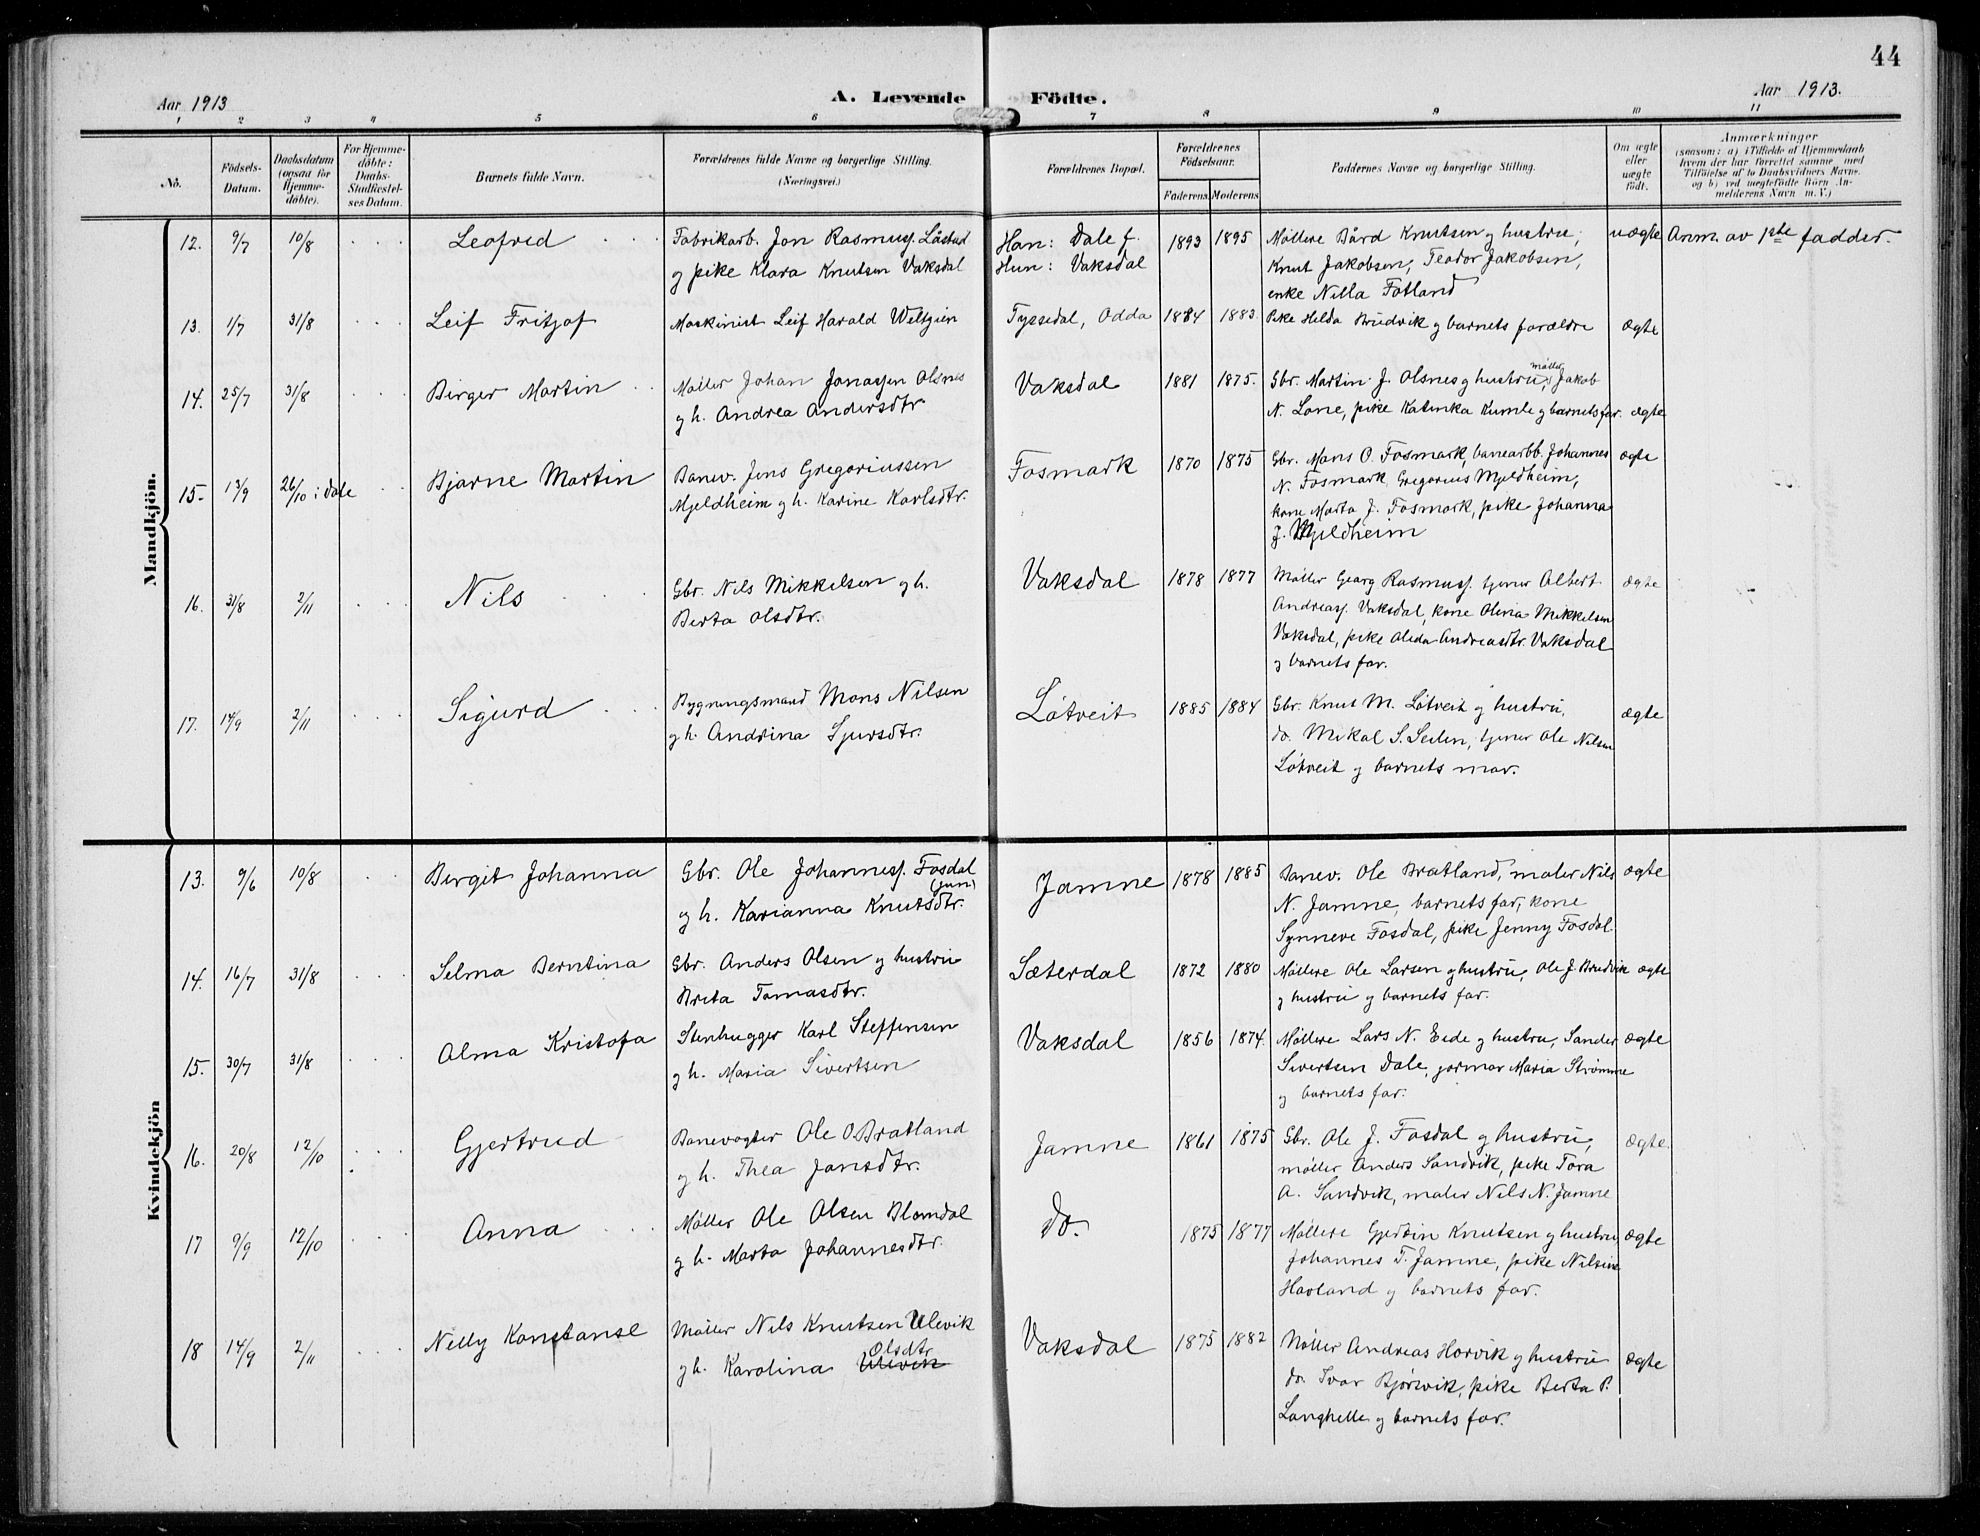 44
Aar 1913
A. Levende Födte.
Aar 1913.
1 2 3 4 5 6 7 8 9 10 11
No.
Födsels-Datum.
Daabsdatum (ogsaa for Hjemme-döbte).
For Hjemme-döbte: Daabs-Stadfæstel-ses Datum.
Barnets fulde Navn.
Forældrenes fulde Navne og borgerlige Stilling.
(Næringsvei.)
Forældrenes Bopæl.
Forældrenes Födselsaar.
Faderens Moderens
Faddernes Navne og borgerlige Stilling.
Om ægte eller uægte födt.
Anmærkninger
(saasom: a) i Tilfælde af Hjemmedaab
hvem der har forrettet samme, med
Tilföielse af to Daabsvidners Navne,
og b) ved uegtefödte Börn An-
melderens Navn m. V.)
Mandkjön.
12. 9/7 10/8 Leofred Fabrikarb. Jon Rasmuss. Låstad Han: Dale f. 1893 1895 Møllere Bård Knutsen g hustru, uægte Anm. av 1ste fadder.
g pike Klara Knutsen Vaksdal Hun: Vaksdal Knut Jakobsen, Teodor Jakobsen,
enke Nilla Fotland
13. 1/7 31/8 Leif Fritjof Maskinist Leif Harald Weltzien Tyssedal, Odda 1884 1883. Pike Helda Brudvik g barnets forældre ægte
14. 25/7 31/8 Birger Martin Møller Johan Jonassen Olsnes Vaksdal 1881 1875. Gbr. Martin J. Olsnes g hustru, møller Jakob
g h. Andrea Andersdtr N. Lone, pike Katinka Kumle g barnets far. ægte
15. 13/9 26/10 i Dale Bjarne Martin Banev. Jens Gregoriussen Fosmark 1870 1875 Gbr. Mons O. Fosmark, banearbb. Johannes ægte
Mjeldheim g h. Karine Karlsdtr. N. Fosmark, Gregorius Mjeldheim,
kone Marta J. Fosmark, pike Johanna
J. Mjeldheim
16. 31/8 2/11 Nils Gbr. Nils Mikkelsen g h. Vaksdal 1878 1877 Møller Georg Rasmuss. tjener Albert ægte
Berta Olsdtr. Andreass. Vaksdal, kone Olina Mikkelsen
Vaksdal, pike Alida Andreasdtr. Vaksdal
g barnets far.
17. 14/9 2/11 Sigurd Bygningsmand Mons Nilsen Løtveit 1885 1884 Gbr. Knut M. Løtveit g hustru, ægte
g h. Andrina Sjursdtr. do. Mikal S. Seilen, tjener Ole Nilsen
Løtveit g barnets mor.
Kvindekjön
13. 9/6 10/8 Birgit Johanna Gbr. Ole Johanness. Fosdal (jun) Jamne 1878 1885 Banev. Ole Bratland, maler Nils ægte
g h. Karianna Knutsdtr. N. Jamne, barnets far, kone
Synneve Fosdal, pike Jenny Fosdal.
14. 16/7 31/8 Selma Berntina Gbr. Anders Olsen g hustru Sæterdal 1872 1880 Møllere Ole Larsen g hustru, Ole J. Brudvik ægte
Brita Tomasdtr. g hustru g barnets far.
15. 30/7 31/8 Alma Kristofa Stenhugger Karl Steffensen Vaksdal 1856 1874. Møllere Lars N. Eide g hustru, Sander ægte
g h. Maria Sivertsen Sivertsen Dale, jormor Maria Strømme
g barnets far.
16. 20/8 12/10 Gjertrud Banevogter Ole O. Bratland Jamne 1861 1875 Gbr. Ole J. Fosdal g hustru, ægte.
g h. Thea Jansdtr. møller Anders Sandvik, pike Tora
A. Sandvik, maler Nils N. Jamne
17 9/9 12/10 Anna Møller Ole Olsen Blomdal do. 1875 1877 Møllere Gjertin Knutsen g hustru ægte
g h. Marta Johannesdtr. Johannes T. Jamne, pike Nilsine
Havland g barnets far.
18 14/9 2/11 Nelly Konstanse Møller Nils Knutsen Ulevik Vaksdal 1875 1882 Møller Andreas Horvik g hustru ægte
g h. Karolina Ulevik Olsdtr do. Ivar Bjørsvik, pike Berta P.
Langhelle g barnets far.